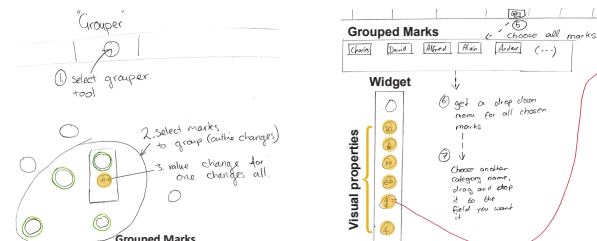 "Grouper"
1. select grouper
tool
2. select marks
to group (outline changes)
3. value change for
one changes all.
Grouped Marks
5
choose all marks
Grouped Marks
Charles David Alfred Alvin Andrew (...)
Widget
Visual properties
6 get a drop down
menu for all chosen
marks
7
Choose another
category name,
drag and drop
it to the
field you want
it